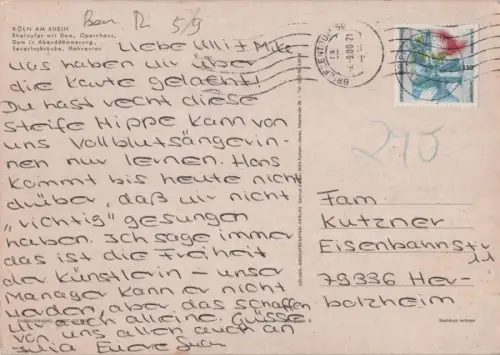 Ben. R. 5/9
KÖLN AM RHEIN
Rheinufer mit Dom, Opernhaus,
Dom in Abenddämmerung,
Severinsbrücke, Hahnentor
Liebe Ulli + Mike
was haben wir über
die Karte gelacht!
Du hast recht diese
steife Hippe kann von
uns Vollblutsängerin-
nen nur lernen. Hans
kommt bis heute nicht
drüber, daß wir nicht
"richtig" gesungen
haben. Ich sage immer
das ist die Freiheit
der Künstlerin - unser
Manager kann er nicht
werden, aber das schaffen
wir auch alleine. Grüsse
von uns allen auch an
Julia Eure Susi
BRIEFZENTRUM 50
-5.9.00-21
110
240
Fam
Kutzner
Eisenbahnstr
11
79336 Her-
bolzheim
Nachdruck verboten